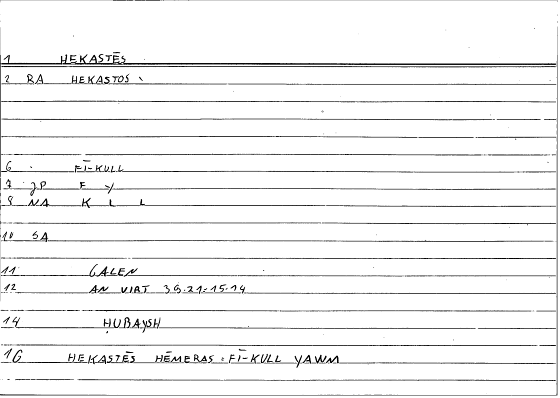 1 HEKASTĒS
2 RA HEKASTOS
6 FĪ-KULL
7 JP F Y
8 NA K L L
10 SA
11 GALEN
12 AN VIRT 39.21:15.14
14 ḤUBAYSH
16 HEKASTĒS HĒMERAS : FĪ-KULL YAWM